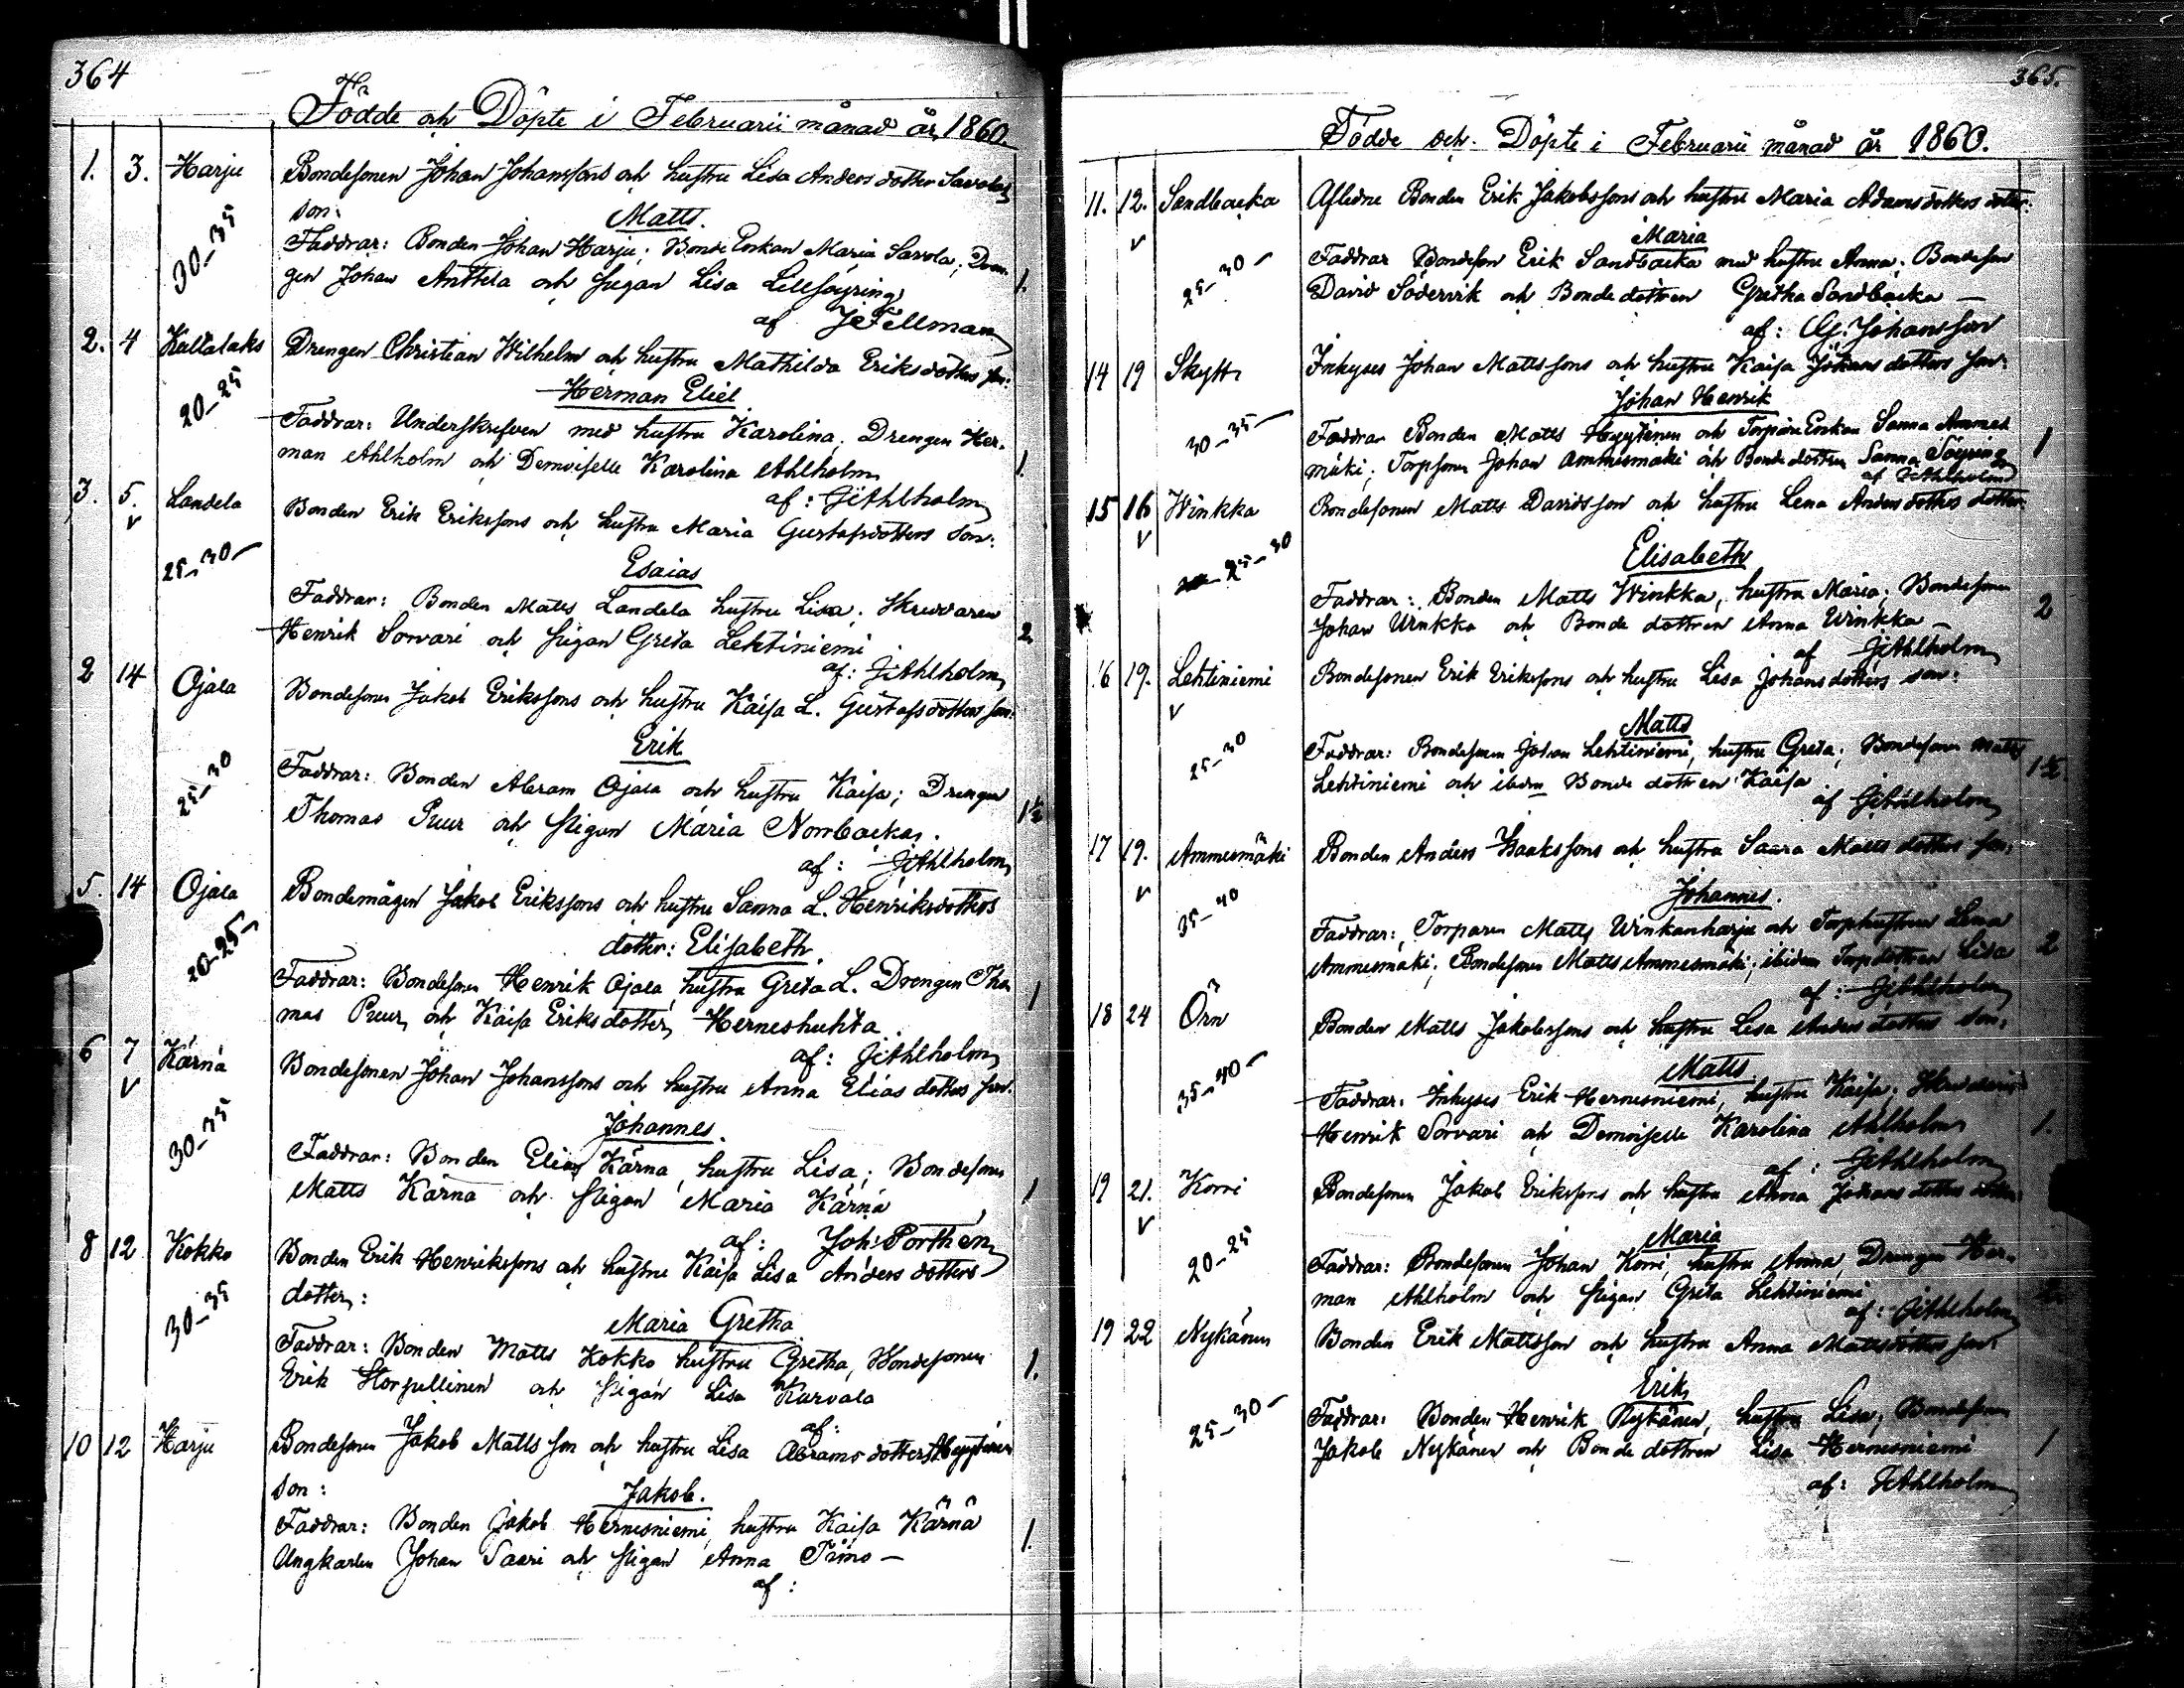 364
Födde och Döpte i Februarii månad år 1860.
1. 3. Harju Bondesonen Johan Johanssons och hustru Lisa Andersdotter Savolas
son:
Matts.
30-35 Faddrar: Bonden Johan Harju; Bonde Enkan Maria Savola; Dren-
gen Johan Anttila och pigan Lisa Lillsöyring 1.
af JFellman
2. 4 Kaltalaks Drengen Christian Wilhelm och hustru Mathilda Eriksdotters son:
Herman Eliel
20-25 Faddrar: Underskrefven med hustru Karolina. Drengen Her-
man Ahlholm och Demoiselle Karolina Ahlholm 1.
af: JAhlholm
3. 5. v Landela Bonden Erik Erikssons och hustru Maria Gustafsdotters son:
25-30- Esaias
Faddrar: Bonden Matts Landela hustru Lisa; Skreddaren
Henrik Sorvari och pigan Greta Lehtiniemi 2
af: JAhlholm
2 14 Ojala Bondesonen Jakob Erikssons och hustru Kaisa L. Gustafsdotters son:
Erik
25-30 Faddrar: Bonden Abram Ojala och hustru Kaisa; Drengen
Thomas Puur och pigan Maria Norrbacka. 1½
af: JAhlholm
5. 14 Ojala Bondemågen Jakob Erikssons och hustru Sanna L. Henriksdotters
20-25- dotter: Elisabeth.
Faddrar: Bondesonen Henrik Ojala, hustru Greta L. Drengen Tho-
mas Puur, och Kaisa Eriksdotter Herneshuhta. 1
af: JAhlholm
6 7 v Kärnä Bondesonen Johan Johanssons och hustru Anna Eliasdotters son:
30-35 Johannes.
Faddrar: Bonden Elias Kärnä, hustru Lisa; Bondesonen
Matts Kärnä och pigan Maria Kärnä 1
af: Joh: Porthén
8 12 Kokko Bonden Erik Henrikssons och hustru Kaisa Lisa Andersdotters
dotter:
30-35 Maria Gretha.
Faddrar: Bonden Matts Kokko hustru Gretha, Bondesonen
Erik och pigan Lisa Karvala 1.
af:
10 12 Harju Bondesonen Jakob Mattsson och hustru Lisa Abramsdotters Hyytinen
son: Jakob.
Faddrar: Bonden Jakob Hernesniemi, hustru Kaisa Kärnä
Ungkarlen Johan Saari och pigan Anna Timo - 1.
af:
365.
Födde och Döpte i Februarii månad år 1860.
11. 12. v Sandbacka Aflidne Bonden Erik Jakobssons och hustru Maria Adamsdotters dotter:
Maria
25-30- Faddrar Bondeson Erik Sandbacka med hustru Anna; Bondeson
David Södervik och Bondedottren Gretha Sandbacka -
af: G. Johansson
14 19 Skytt Inhyses Johan Mattssons och hustru Kaisa Johansdotters son:
Johan Henrik
30-35- Faddrar Bonden Matts Hyytinen och Torpare Enkan Sanna Ammes
mäki; Torpsonen Johan Ammesmäki och Bondedottren Sanna Söyring 1
af JAhlholm
15 16 v Winkka Bondesonen Matts Davidsson och hustru Lena Andersdotters dotter:
25-30 Elisabeth
Faddrar: Bonden Matts Winkka, hustru Maria; Bondesonen
Johan Winkka och Bondedottren Anna Winkka - 2
af JAhlholm
16 19. v Lehtiniemi Bondesonen Erik Erikssons och hustru Lisa Johansdotters son:
Matts
25-30 Faddrar: Bondesonen Johan Lehtiniemi, hustru Greta; Bondesonen Matts
Lehtiniemi och ibidem Bondedottren Kaisa. 1½.
af JAhlholm
17 19. v Ammesmäki Bonden Anders Isakssons och hustru Saara Mattsdotters son:
35-40 Johannes.
Faddrar: Torparen Matts Winkanharju och Torphustrun Lena
Ammesmäki; Bondesonen Matts Ammesmäki; ibidem Torpdottren Lisa 2
af: JAhlholm
18 24 Örn Bonden Matts Jakobssons och hustru Lisa Andersdotters son:
35-40- Matts.
Faddrar: Inhyses Erik Hernesniemi, hustru Kaisa; Skreddaren
Henrik Sorvari och Demoiselle Karolina Ahlholm 1.
af: JAhlholm
19 21. v Korri Bondesonen Jakob Erikssons och hustru Anna Johansdotters dotter:
20-25 Maria
Faddrar: Bondesonen Johan Korri, hustru Anna, Drengen Her-
man Ahlholm och pigan Greta Lehtiniemi
af: JAhlholm
19 22 Nykänen Bonden Erik Mattsson och hustru Anna Mattsdotters son:
Erik
25-30- Faddrar: Bonden Henrik Nykänen, hustru Lisa; Bondesonen
Jakob Nykänen och Bondedottren Lisa Hernesniemi 1
af: JAhlholm